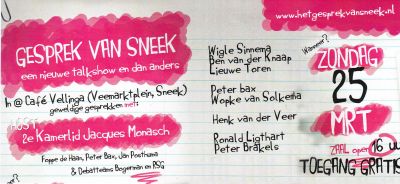 www.hetgesprekvansneek.nl
GESPREK VAN SNEEK
een nieuwe talkshow en dan anders
In @ Café Vellinga (Veemarktplein, Sneek)
geweldige gesprekken met:
2e Kamerlid Jacques Monasch
Foppe de Haan, Peter Bax, Jan Posthuma
& Debatteams Bogerman en RSG
Wigle Sinnema
Ben van der Knaap
Lieuwe Toren
Peter bax
Wopke van Solkema
Henk van der Veer
Ronald Ligthart
Peter Brakels
Wanneer?
ZONDAG
25
MRT
ZAAL open 16 uu
TOEGANG GRATIS